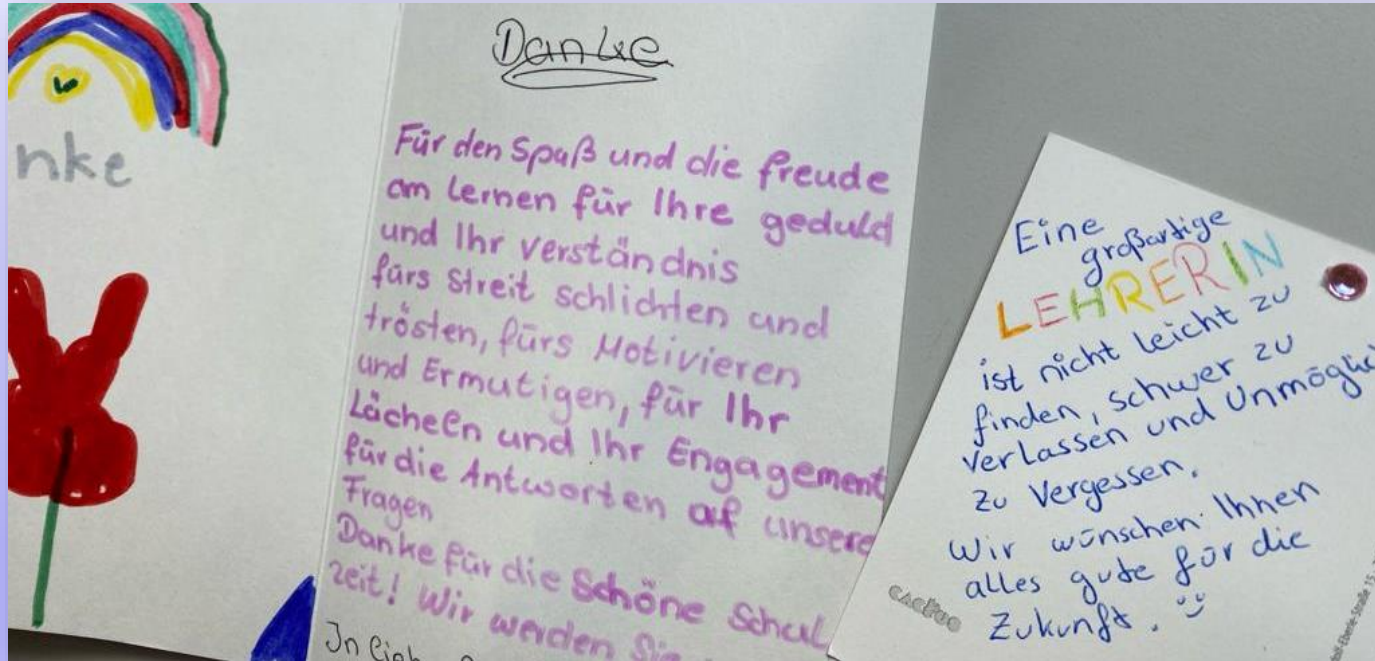 nke
Danke
Für den Spaß und die freude
am lernen für Ihre geduld
und Ihr verständnis
fürs Streit schlichten und
trösten, fürs Motivieren
und Ermutigen, für Ihr
Lächeln und Ihr Engagement
für die Antworten af unsere
Fragen
Danke für die Schöne Schul
zeit! Wir werden Sie
In
Eine
großartige
LEHRERIN
ist nicht leicht zu
finden, schwer zu
verlassen und Unmöglic
zu Vergessen.
Wir wünschen Ihnen
alles gute für die
Zukunft.
CACTUS